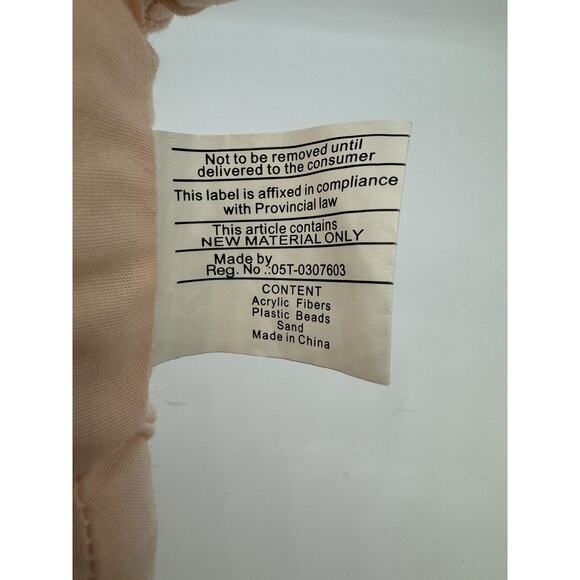 Not to be removed until
delivered to the consumer
This label is affixed in compliance
with Provincial law
This article contains
NEW MATERIAL ONLY
Made by
Reg. No .:05T-0307603
CONTENT
Acrylic Fibers
Plastic Beads
Sand
Made in China